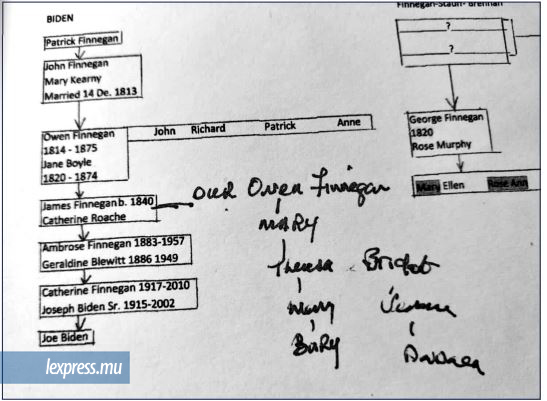 BIDEN
Finnegan-Staun- Brennan
Patrick Finnegan
?
?
John Finnegan
Mary Kearny
Married 14 De. 1813
Owen Finnegan
1814 - 1875
Jane Boyle
1820 - 1874
John Richard Patrick Anne
George Finnegan
1820
Rose Murphy
Mary Ellen Rose Ann
James Finnegan b. 1840
Catherine Roache
our Owen Finnegan
MARY
Theresa Bridget
Mary
BARY
Ambrose Finnegan 1883-1957
Geraldine Blewitt 1886 1949
Catherine Finnegan 1917-2010
Joseph Biden Sr. 1915-2002
Joe Biden
lexpress.mu